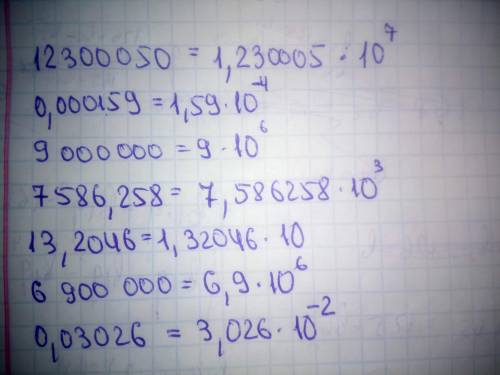 12300050 = 1,230005 · 10⁷
0,000159 = 1,59 · 10⁻⁴
9 000 000 = 9 · 10⁶
7586,258 = 7,586258 · 10³
13,2046 = 1,32046 · 10
6 900 000 = 6,9 · 10⁶
0,03026 = 3,026 · 10⁻²